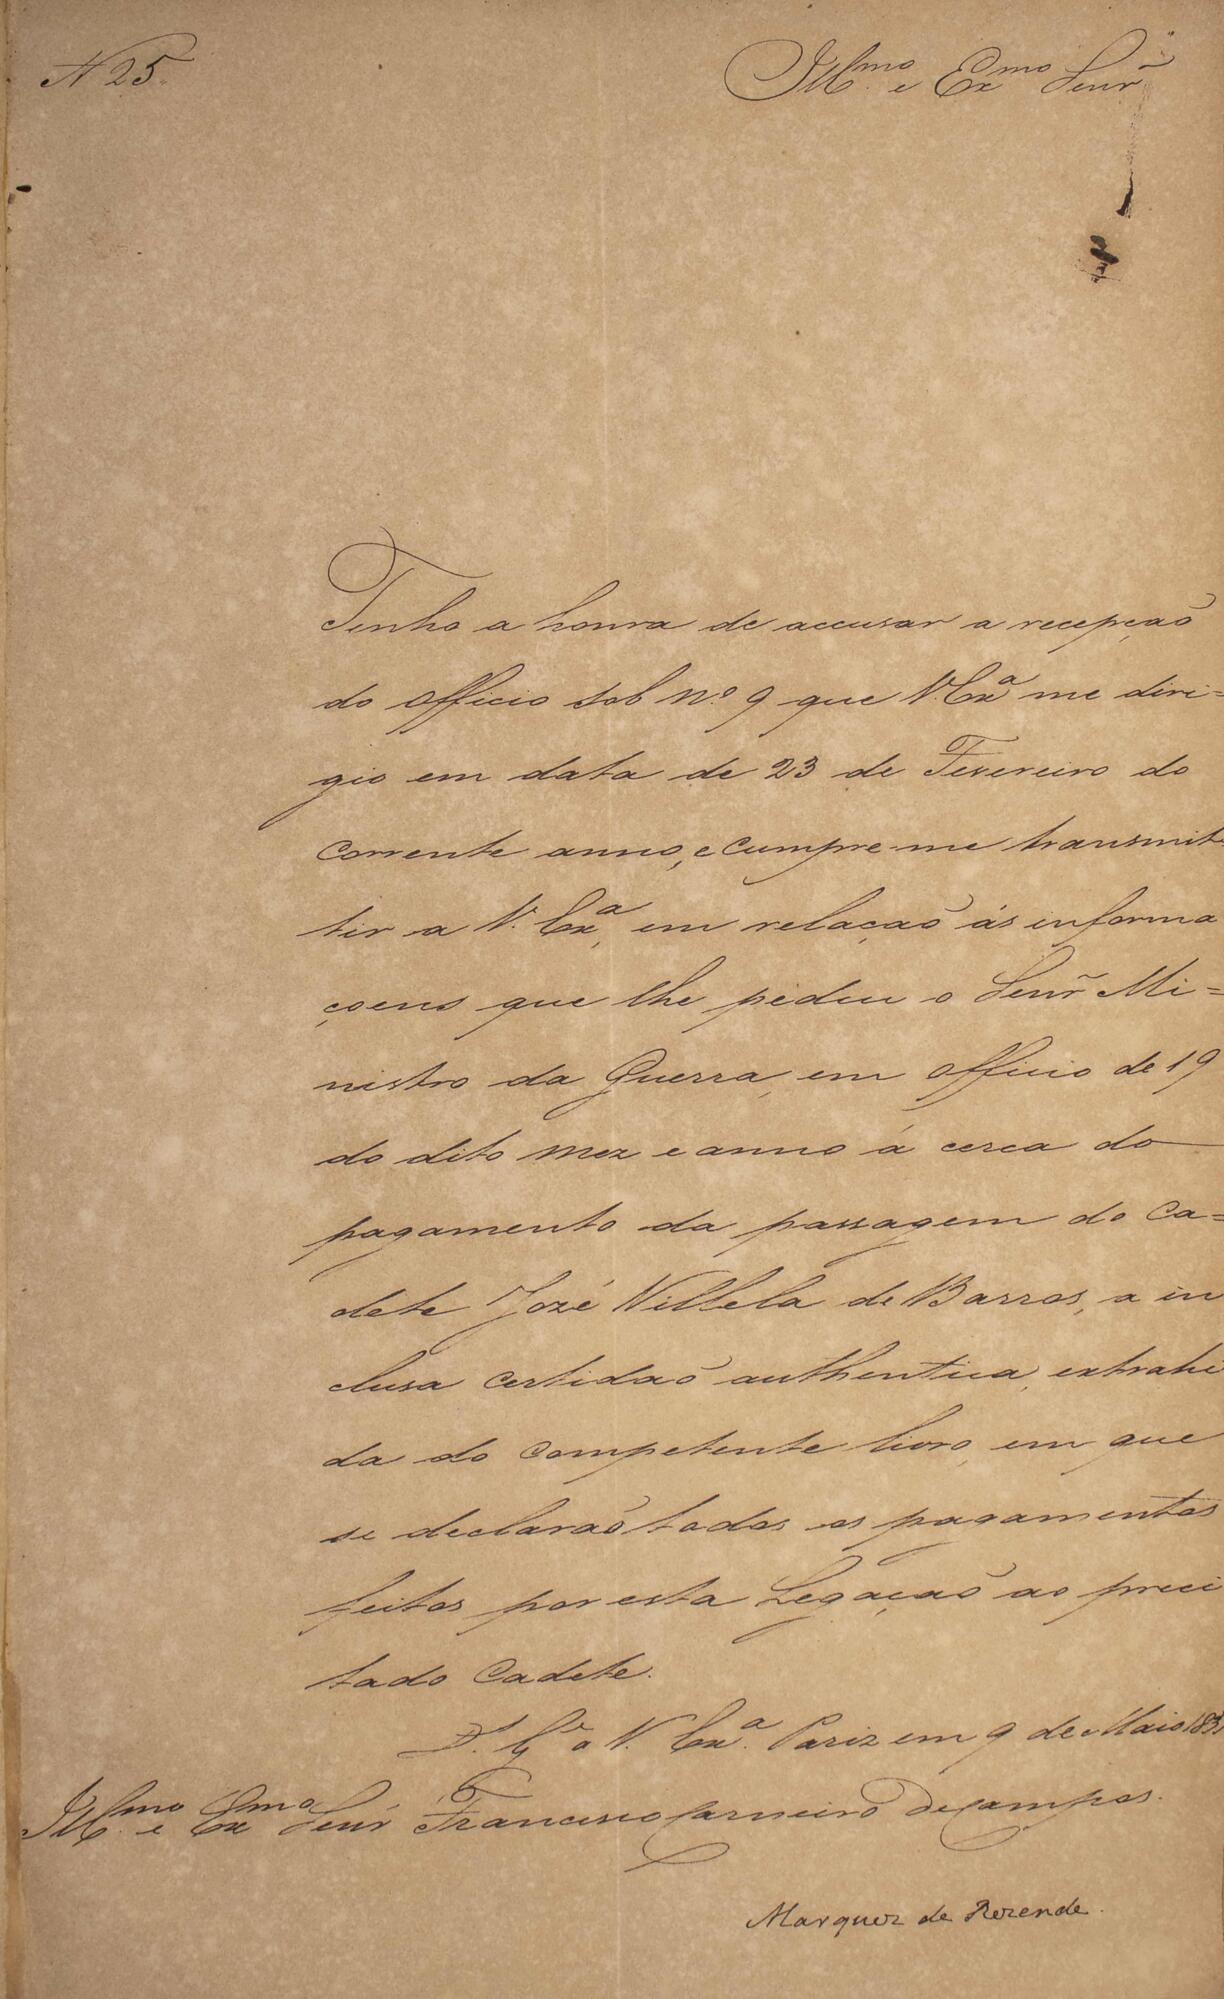 N 25.
Ill.mo e Ex.mo Senr̃
Tenho a honra de accusar a recepçaõ
do officio sob N.º 9 que V. Ex.ª me diri=
gio em data de 23 de Fevereiro do
corrente anno, e cumpre-me transmit-
tir a V. Ex.ª, em relaçaõ ás informa
çoens que lhe pediu o Senr̃ Mi=
nistro da Guerra, em officio de 19
do dito mez e anno á cerca do
pagamento da passagem do Ca=
dete Jozé Villela de Barros, a in
clusa certidaõ authentica, extrahi
da do competente livro, em que
se declaraõ todos os pagamentos
feitos por esta Legaçaõ ao preci
tado Cadete.
D. G.e a V. Ex.ª. Pariz em 9 de Maio
Ill.mo e Ex.mo Senr̃ Francisco Carneiro de Campos.
Marquez de Rezende.